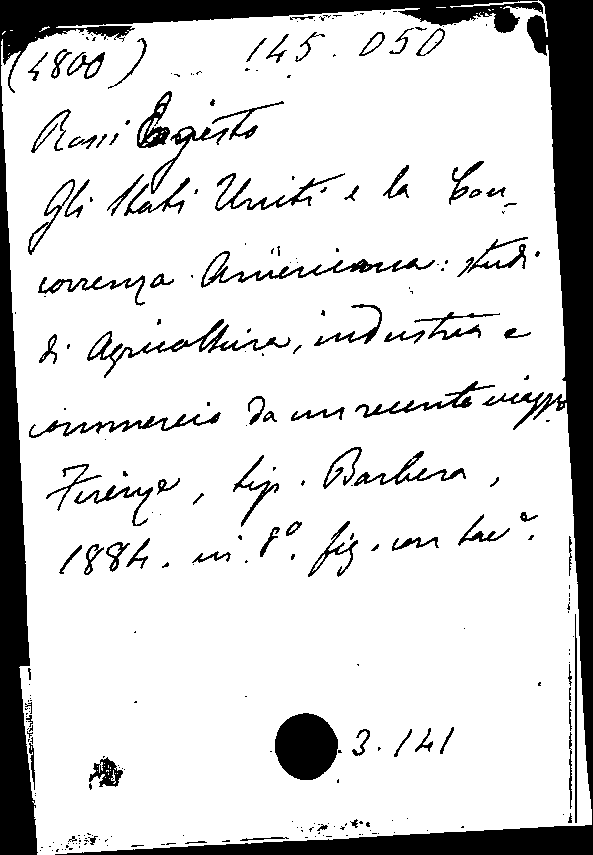 (4800) 145.050
Rossi Egisto
Gli Stati Uniti e la Con-
correnza Americana: studi
di Agricoltura, industria e
commercio da un recente viaggio
Firenze, tip. Barbera,
1884. in 8º. fig. con tavª.
3.141